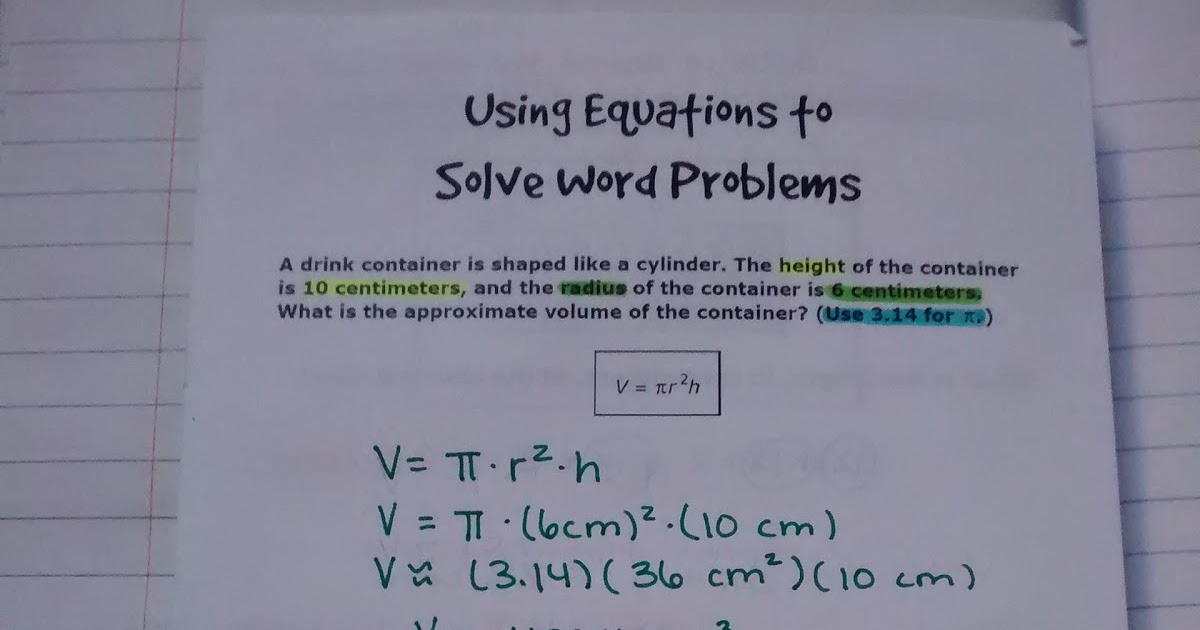 Using Equations to
Solve Word Problems
A drink container is shaped like a cylinder. The height of the container
is 10 centimeters, and the radius of the container is 6 centimeters.
What is the approximate volume of the container? (Use 3.14 for π.)
V = πr²h
V = π · r² · h
V = π · (6cm)² · (10 cm)
V ≈ (3.14)(36 cm²)(10 cm)